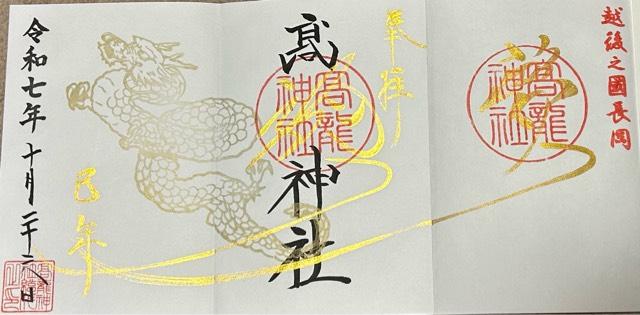 越後之國長岡
高龍
神社
奉拝
髙龍神社
高龍
神社
巳年
令和七年十月二十六日